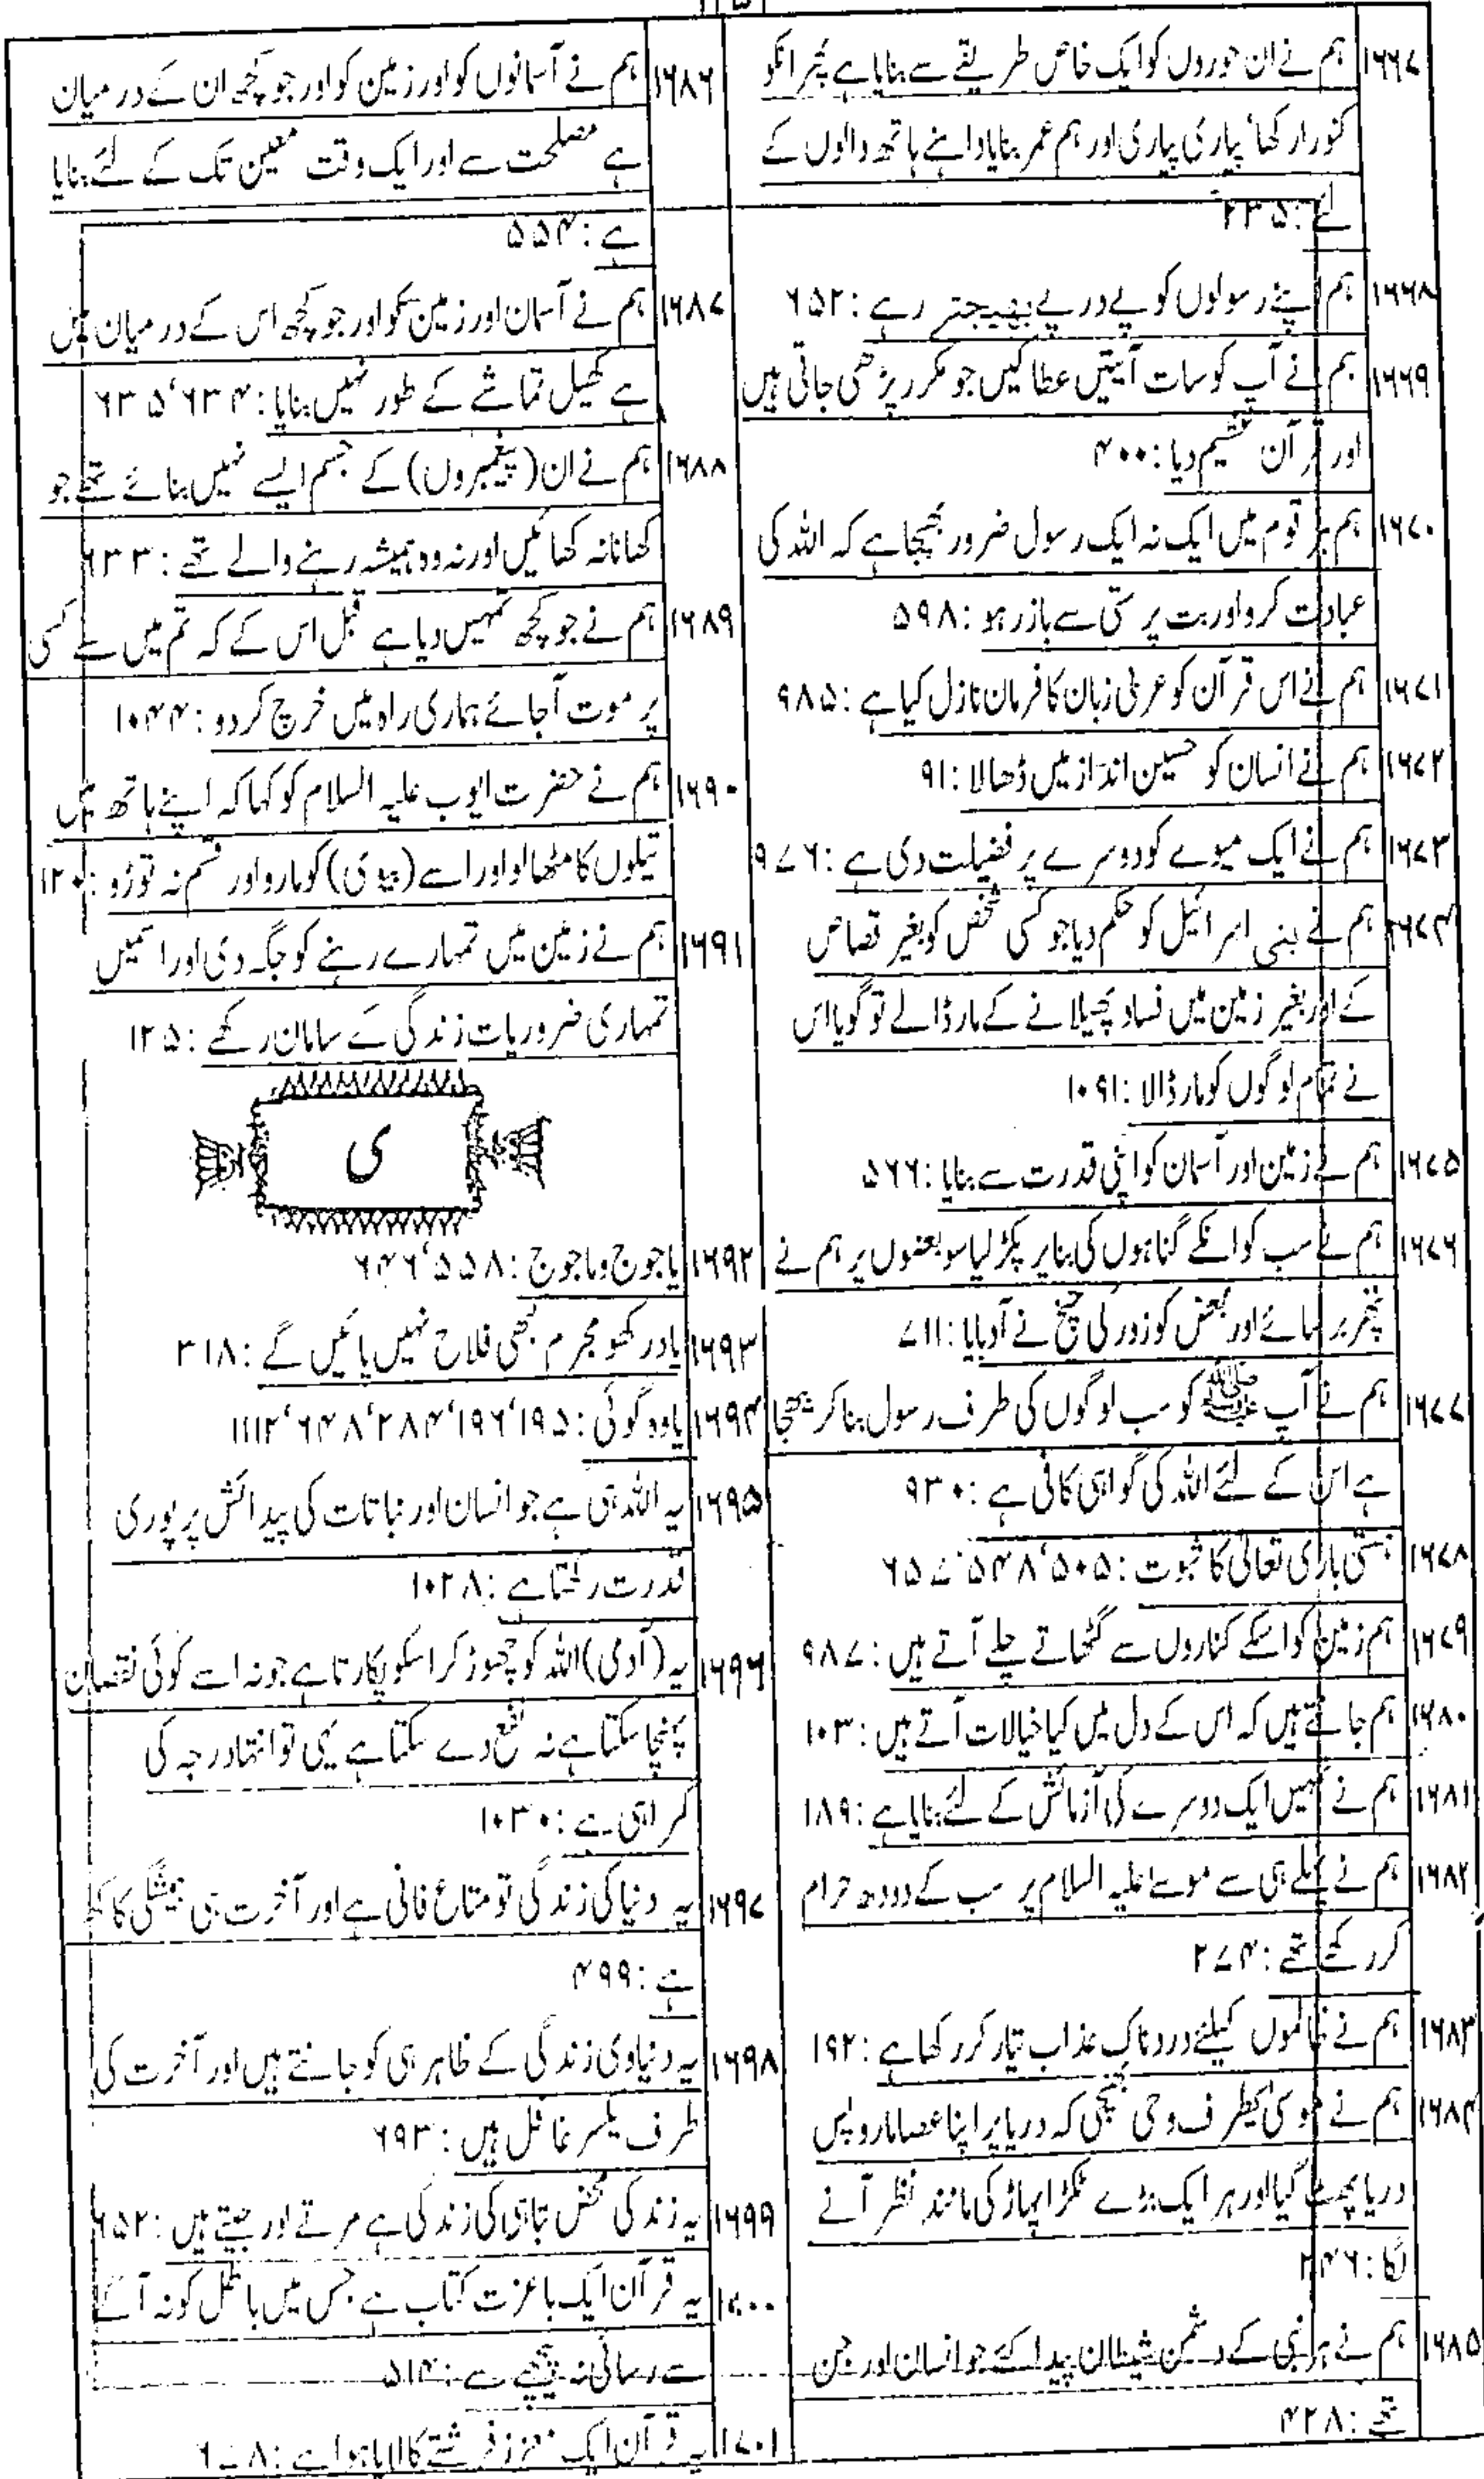 ۱۶۶۷ ہم نے ان حوروں کو ایک خاص طریقے سے بنایا ہے پھر انکو
کنوارا رکھا، پیاری پیاری اور ہم عمر بنایا داہنے ہاتھ والوں کے
لئے: ۲۳۵
۱۶۶۸ ہم اپنے رسولوں کو پے در پے بھیجتے رہے: ۶۵۲
۱۶۶۹ ہم نے آپ کو سات آیتیں عطا کیں جو مکرر پڑھی جاتی ہیں
اور قرآن عظیم دیا: ۴۰۰
۱۶۷۰ ہم ہر قوم میں ایک نہ ایک رسول ضرور بھیجا ہے کہ اللہ کی
عبادت کرو اور بت پرستی سے باز رہو: ۵۹۸
۱۶۷۱ ہم نے اس قرآن کو عربی زبان کا فرمان نازل کیا ہے: ۹۸۵
۱۶۷۲ ہم نے انسان کو حسین انداز میں ڈھالا: ۹۱
۱۶۷۳ ہم نے ایک میوے کو دوسرے پر فضیلت دی ہے: ۹۷۶
۱۶۷۴ ہم نے بنی اسرائیل کو حکم دیا جو کسی شخص کو بغیر قصاص
کے اور بغیر زمین میں فساد پھیلانے کے مار ڈالے تو گویا اس
نے تمام لوگوں کو مار ڈالا: ۱۰۹۱
۱۶۷۵ ہم نے زمین اور آسمان کو اپنی قدرت سے بنایا: ۵۶۶
۱۶۷۶ ہم نے سب کو انکے گناہوں کی بنا پر پکڑ لیا سو بعضوں پر ہم نے
پتھر برسائے اور بعض کو زور کی چیخ نے آ دبایا: ۷۱۱
۱۶۷۷ ہم نے آپ ﷺ کو سب لوگوں کی طرف رسول بنا کر بھیجا
ہے اس کے لئے اللہ کی گواہی کافی ہے: ۹۳۰
۱۶۷۸ ہستی باری تعالیٰ کا ثبوت: ۵۰۵، ۵۴۸، ۶۵۷
۱۶۷۹ ہم زمین کو اسکے کناروں سے گھٹاتے چلے آتے ہیں: ۹۸۷
۱۶۸۰ ہم جانتے ہیں کہ اس کے دل میں کیا خیالات آتے ہیں: ۱۰۳
۱۶۸۱ ہم نے تمہیں ایک دوسرے کی آزمائش کے لئے بنایا ہے: ۱۸۹
۱۶۸۲ ہم نے پہلے ہی سے موسے علیہ السلام پر سب کے دودھ حرام
کر رکھے تھے: ۲۷۴
۱۶۸۳ ہم نے ظالموں کیلئے دردناک عذاب تیار کر رکھا ہے: ۱۹۲
۱۶۸۴ ہم نے موسیٰ کیطرف وحی بھیجی کہ دریا پر اپنا عصا مارو پس
دریا پھٹ گیا اور ہر ایک بڑے ٹکڑا پہاڑ کی مانند نظر آنے
لگا: ۲۴۶
۱۶۸۵ ہم نے ہر نبی کے دشمن شیطان پیدا کئے جو انسان اور جن
تھے: ۴۲۸
۱۶۸۶ ہم نے آسمانوں کو اور زمین کو اور جو کچھ ان کے درمیان
ہے مصلحت سے اور ایک وقت معین تک کے لئے بنایا
ہے: ۵۵۴
۱۶۸۷ ہم نے آسمان اور زمین کو اور جو کچھ اس کے درمیان میں
ہے کھیل تماشے کے طور نہیں بنایا: ۶۳۴، ۶۳۵
۱۶۸۸ ہم نے ان (پیغمبروں) کے جسم ایسے نہیں بنائے تھے جو
کھانا نہ کھائیں اور نہ وہ ہمیشہ رہنے والے تھے: ۶۳۳
۱۶۸۹ ہم نے جو کچھ تمہیں دیا ہے قبل اس کے کہ تم میں سے کسی
پر موت آجائے ہماری راہ میں خرچ کر دو: ۱۰۴۴
۱۶۹۰ ہم نے حضرت ایوب علیہ السلام کو کہا کہ اپنے ہاتھ میں
تیلوں کا مٹھا لو اور اسے (بیوی) کو مارو اور قسم نہ توڑو: ۱۲۰
۱۶۹۱ ہم نے زمین میں تمہارے رہنے کو جگہ دی اور اسمیں
تمہاری ضروریات زندگی کے سامان رکھے: ۱۲۵
ی
۱۶۹۲ یاجوج وماجوج: ۵۵۸، ۶۴۶
۱۶۹۳ یاد رکھو مجرم کبھی فلاح نہیں پائیں گے: ۳۱۸
۱۶۹۴ یاوہ گوئی: ۱۹۵، ۱۹۶، ۲۸۴، ۶۴۸، ۱۱۱۲
۱۶۹۵ یہ اللہ ہی ہے جو انسان اور نباتات کی پیدائش پر پوری
قدرت رکھتا ہے: ۱۰۲۸
۱۶۹۶ یہ (آدمی) اللہ کو چھوڑ کر اسکو پکارتا ہے جو نہ اسے کوئی نقصان
پہنچا سکتا ہے نہ نفع دے سکتا ہے یہی تو انتہا درجہ کی
گمراہی ہے: ۱۰۳۰
۱۶۹۷ یہ دنیا کی زندگی تو متاع فانی ہے اور آخرت ہی ہمیشگی کا
ہے: ۴۹۹
۱۶۹۸ یہ دنیاوی زندگی کے ظاہر ہی کو جانتے ہیں اور آخرت کی
طرف یکسر غافل ہیں: ۶۹۳
۱۶۹۹ یہ زندگی محض تباہی کی زندگی ہے مرتے اور جیتے ہیں: ۶۵۲
۱۷۰۰ یہ قرآن ایک باعزت کتاب ہے جس میں باطل کو نہ آگے
سے رسائی نہ پیچھے سے: ۵۱۴
۱۷۰۱ یہ قرآن ایک معزز فرشتے کا لایا ہوا ہے: ۶۷۸